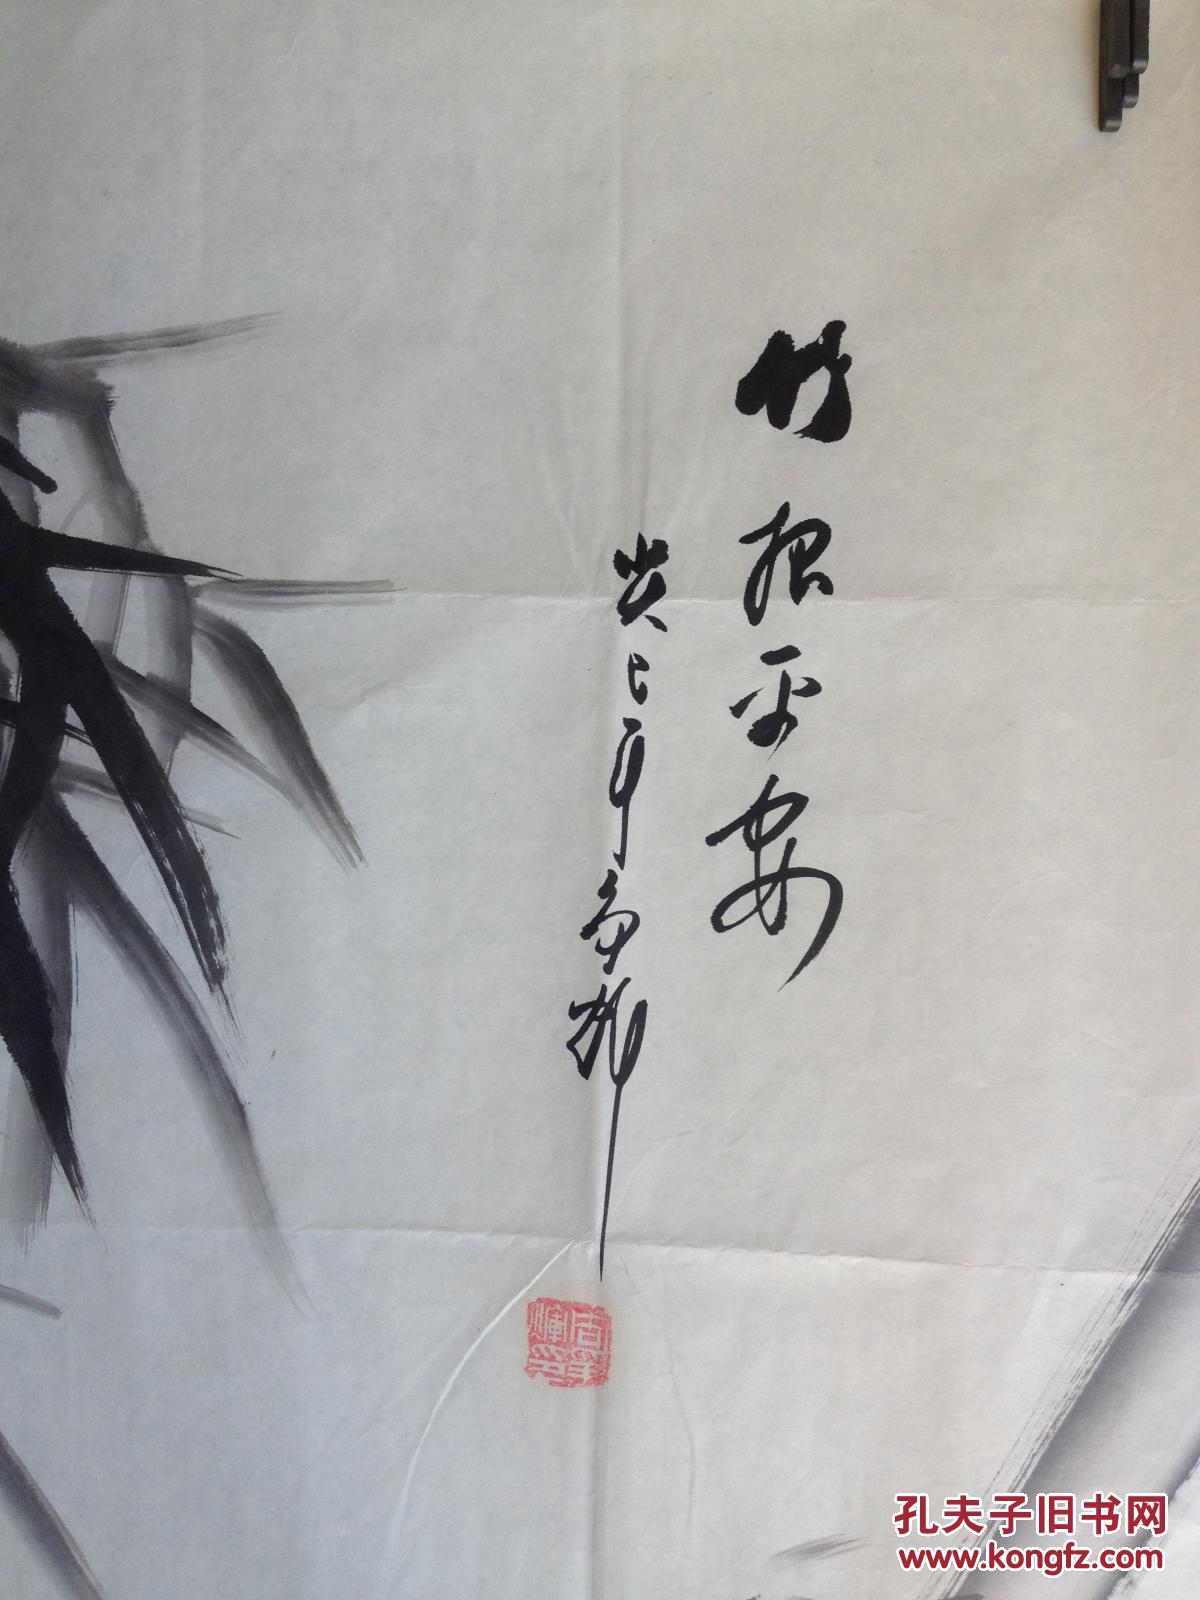 竹报平安
癸巳年
孔夫子旧书网
www.kongfz.com